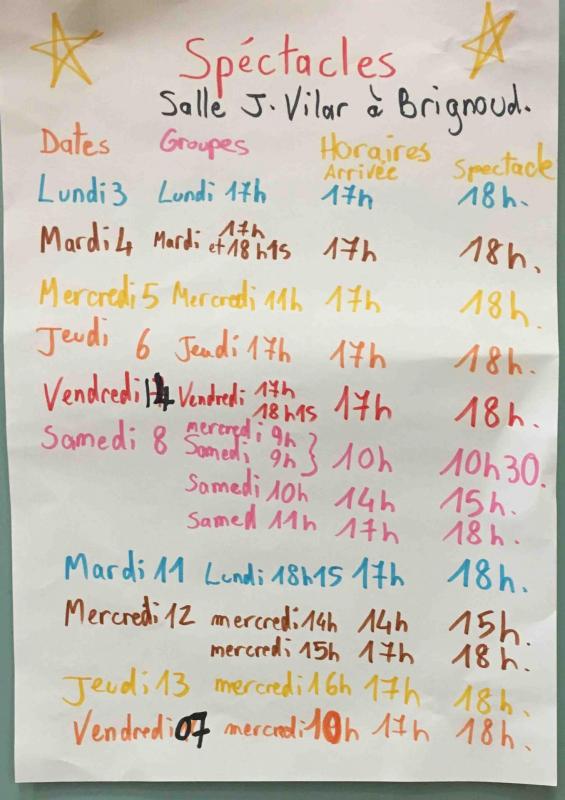 Spéctacles
Salle J. Vilar à Brignoud.
Dates Groupes Horaires Arrivée Spectacle
Lundi 3 Lundi 17h 17h 18h.
Mardi 4 Mardi 17h et 18h15 17h 18h.
Mercredi 5 Mercredi 11h 17h 18h.
Jeudi 6 Jeudi 17h 17h 18h.
Vendredi 14 Vendredi 17h 18h15 17h 18h.
Samedi 8 mercredi 9h
Samedi 9h } 10h 10h30.
Samedi 10h 14h 15h.
Samed 11h 17h 18h.
Mardi 11 Lundi 18h15 17h 18h.
Mercredi 12 mercredi 14h 14h 15h.
mercredi 15h 17h 18h.
Jeudi 13 mercredi 16h 17h 18h.
Vendredi 07 mercredi 10h 17h 18h.